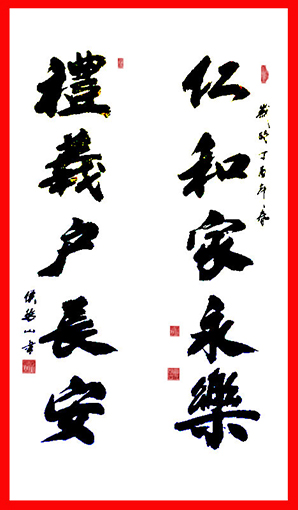 仁和家永樂
歲次丁酉年春
禮義户長安
侯
山書